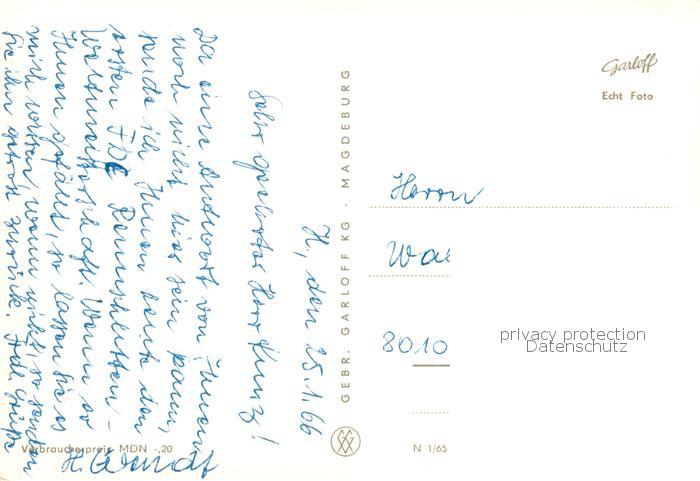 H., den 25.1.66
Sehr geehrter Herr Kunz!
Da eine Antwort von Ihnen
noch nicht hier sein kann,
sende ich Ihnen heute den
ersten FDC Rennschlitten-
Weltmeisterschaft. Wenn er
Ihnen gefällt, so lassen Sie es
mich wissen, wenn nicht, so senden
Sie ihn getrost zurück.
H. Wendt
GEBR. GARLOFF KG · MAGDEBURG
Garloff
Echt Foto
Herrn
Wa
8010
privacy protection
Datenschutz
Verbraucherpreis MDN -,20
N 1/65